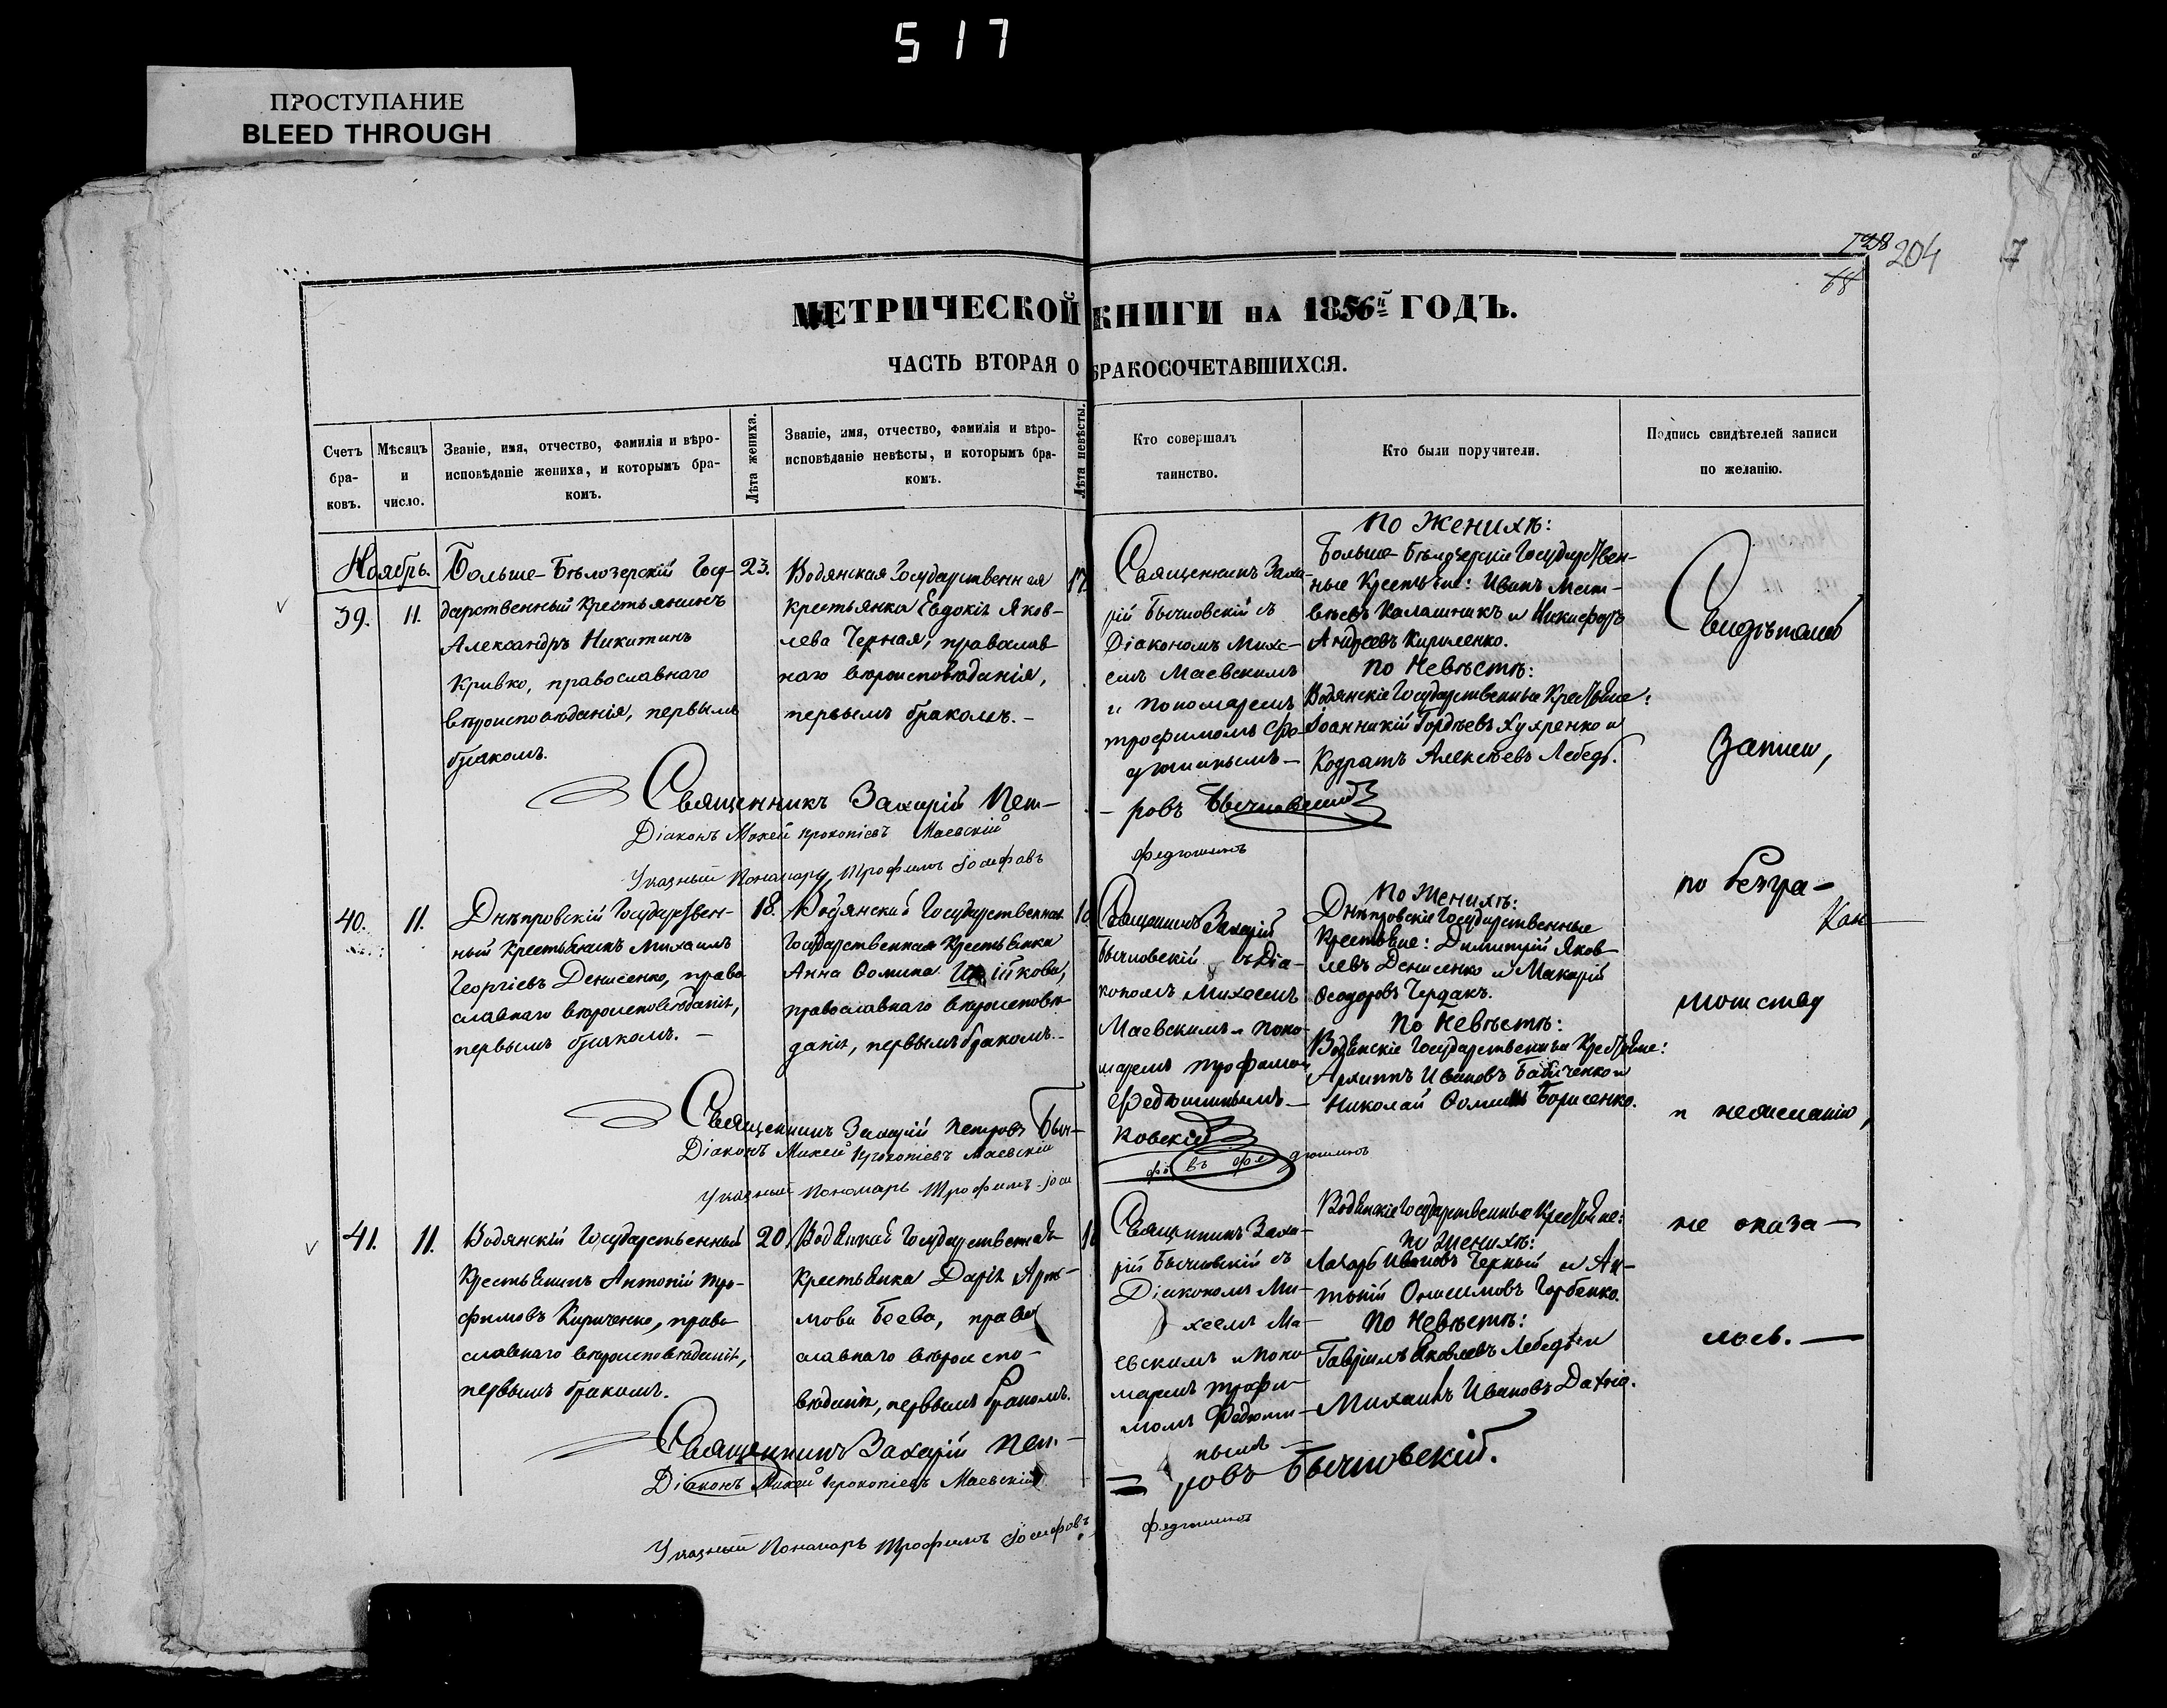 517
ПРОСТУПАНИЕ
BLEED THROUGH
204
МЕТРИЧЕСКОЙ КНИГИ НА 1856й ГОДЪ.
ЧАСТЬ ВТОРАЯ О БРАКОСОЧЕТАВШИХСЯ.
Счетъ бра-ковъ.
Мѣсяцъ и число.
Званіе, имя, отчество, фамилія и вѣро-
исповѣданіе жениха, и которымъ бра-
комъ.
Лѣта жениха.
Званіе, имя, отчество, фамилія и вѣро-
исповѣданіе невѣсты, и которымъ бра-
комъ.
Лѣта невѣсты.
Кто совершалъ
таинство.
Кто были поручители.
Подпись свидѣтелей записи
по желанію.
Ноябрь.
39.
11.
Больше-Бѣлозерскій Госу-
дарственный Крестьянинъ
Александръ Никитинъ
Кривко, православнаго
вѣроисповѣданія, первымъ
бракомъ.
23.
Водянская Государственная
крестьянка Евдокія Яков-
лева Черная, православ
наго вѣроисповѣданія,
первымъ бракомъ.-
17.
Священникъ Заха-
рій Бычковскій съ
Діакономъ Михе-
емъ Маевскимъ
и Пономаремъ
Трофимомъ Фе-
дюшинымъ-
По Женихѣ:
Больше-Бѣлозерскіе Государствен-
ные Крестьяне: Иванъ Мат-
вѣевъ Калашникъ и Никифоръ
Андреевъ Кириленко.
По Невѣстѣ:
Водянскіе Государственные Крестьяне:
Іоанникій Гордѣевъ и
Кодратъ Алексѣевъ Лебедь.
Священникъ Захарій Пет-
-ровъ Бычковскій
Діаконъ Михей Прокопіевъ Маевскій
Указный Пономарь Трофимъ Іосифовъ
Федюшинъ
40.
11.
Днѣпровскій Государствен-
ный Крестьянинъ Михаилъ
Георгіевъ Денисенко, право
славнаго вѣроисповѣданія,
первымъ бракомъ.-
18.
Водянская Государственная
Государственная Крестьянка
Анна Ѳомина
православнаго вѣроисповѣ-
данія, первымъ бракомъ.-
Священникъ Захарій
Бычковскій съ Діа-
кономъ Михеемъ
Маевскимъ и Поно-
маремъ Трофимомъ
Федюшинымъ-
По Женихѣ:
Днѣпровскіе Государственные
Крестьяне: Димитрій Яков-
левъ Денисенко и Макарій
Ѳеодоровъ Чердакъ.
По Невѣстѣ:
Водянскіе Государственные Крестьяне:
Архипъ Ивановъ и
Николай Ѳоминъ Борисенко.
Священникъ Захарій Петровъ Быч-
ковскій
Діаконъ Михей Прокопіевъ Маевскій
Указный Пономарь Трофимъ Іоси
фовъ Федюшинъ
41.
11.
Водянскій Государственный
Крестьянинъ Антоній Тро-
фимовъ Кириченко, право
славнаго вѣроисповѣданія,
первымъ бракомъ.
20.
Водянская Государственная
Крестьянка Дарія Арте-
мова Беева, право
славнаго вѣроиспо-
вѣданія, первымъ бракомъ.
Священникъ Заха-
рій Бычковскій съ
Діакономъ Ми-
хеемъ Ма-
евскимъ и Поно-
маремъ Трофи-
момъ Федюши-
нымъ
Водянскіе Государственные Крестьяне:
По Женихѣ:
Лазарь Ивановъ Черный и Ан-
тоній Онисимовъ Горбенко.
По Невѣстѣ:
Гавріилъ Яковлевъ Лебедь и
Михаилъ Ивановъ
Священникъ Захарій Пет-
ровъ Бычковскій.
Діаконъ Михей Прокопіевъ Маевскій
Указный Пономарь Трофимъ Іосифовъ
Федюшинъ
Свидѣтелей
Записи,
по безгра-
мотству
и нежеланію,
не оказа-
лось.-